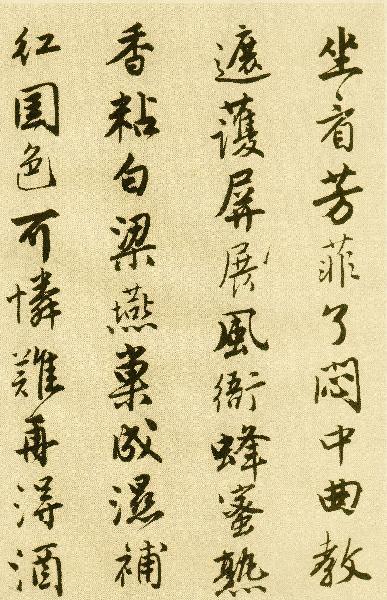 坐看芳菲了悶中曲教
遮護屏展風衙蜂蜜熟
香粘白梁燕窠成濕補
紅國色可憐難再得酒